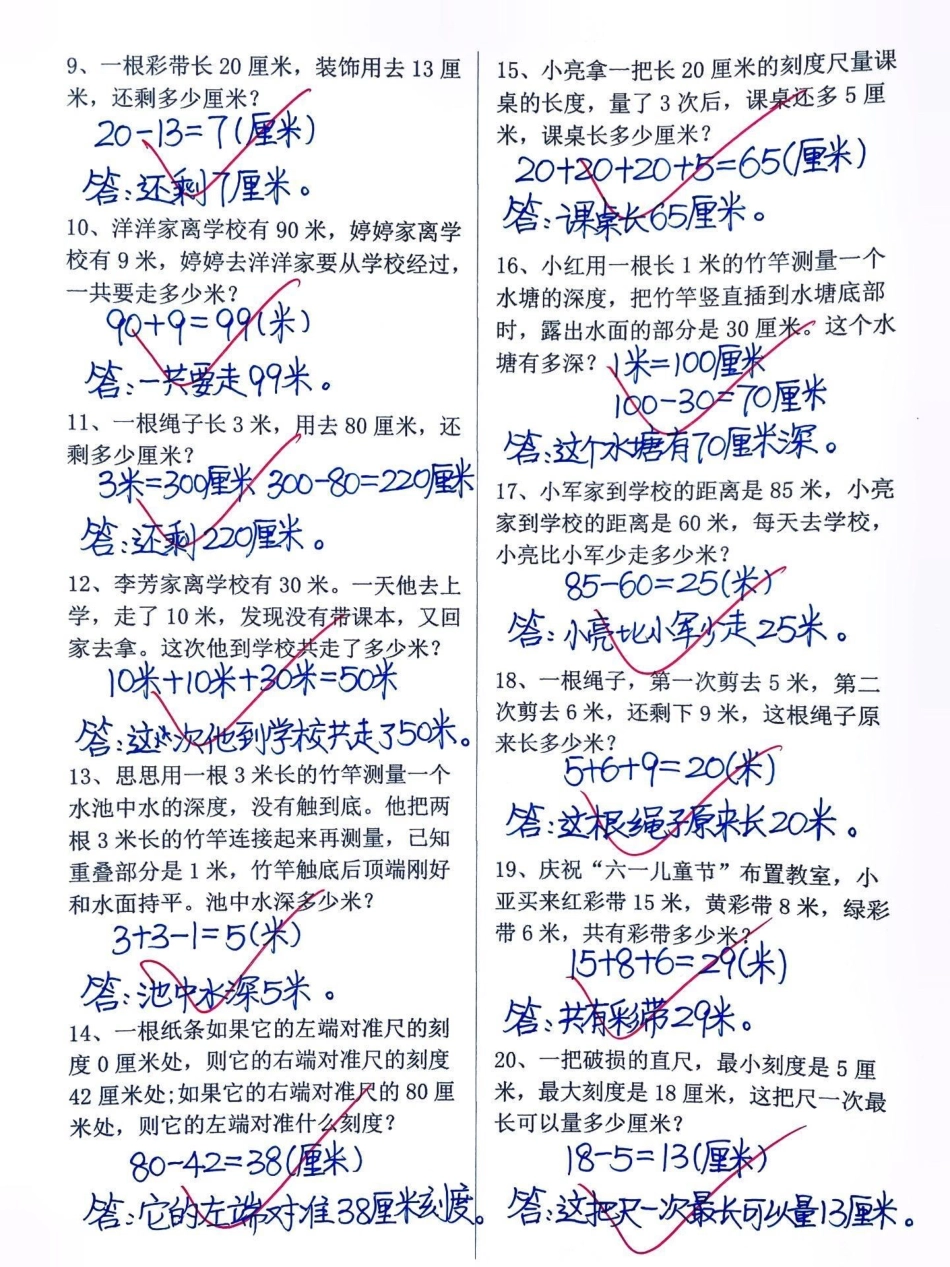 9、一根彩带长 20 厘米，装饰用去 13 厘
米，还剩多少厘米？
20-13=7(厘米)
答:还剩7厘米。
10、洋洋家离学校有 90 米，婷婷家离学
校有 9 米，婷婷去洋洋家要从学校经过，
一共要走多少米？
90+9=99(米)
答:一共要走99米。
11、一根绳子长 3 米，用去 80 厘米，还
剩多少厘米？
3米=300厘米 300-80=220厘米
答:还剩220厘米。
12、李芳家离学校有 30 米。一天他去上
学，走了 10 米，发现没有带课本，又回
家去拿。这次他到学校共走了多少米？
10米+10米+30米=50米
答:这次他到学校共走了50米。
13、思思用一根 3 米长的竹竿测量一个
水池中水的深度，没有触到底。他把两
根 3 米长的竹竿连接起来再测量，已知
重叠部分是 1 米，竹竿触底后顶端刚好
和水面持平。池中水深多少米？
3+3-1=5(米)
答:池中水深5米。
14、一根纸条如果它的左端对准尺的刻
度 0 厘米处，则它的右端对准尺的刻度
42 厘米处;如果它的右端对准尺的 80 厘
米处，则它的左端对准什么刻度？
80-42=38(厘米)
答:它的左端对准38厘米刻度。
15、小亮拿一把长 20 厘米的刻度尺量课
桌的长度，量了 3 次后，课桌还多 5 厘
米，课桌长多少厘米？
20+20+20+5=65(厘米)
答:课桌长65厘米。
16、小红用一根长 1 米的竹竿测量一个
水塘的深度，把竹竿竖直插到水塘底部
时，露出水面的部分是 30 厘米。这个水
塘有多深？ 1米=100厘米
100-30=70厘米
答:这个水塘有70厘米深。
17、小军家到学校的距离是 85 米，小亮
家到学校的距离是 60 米，每天去学校，
小亮比小军少走多少米？
85-60=25(米)
答:小亮比小军少走25米。
18、一根绳子，第一次剪去 5 米，第二
次剪去 6 米，还剩下 9 米，这根绳子原
来长多少米？
5+6+9=20(米)
答:这根绳子原来长20米。
19、庆祝“六一儿童节”布置教室，小
亚买来红彩带 15 米，黄彩带 8 米，绿彩
带 6 米，共有彩带多少米？
15+8+6=29(米)
答:共有彩带29米。
20、一把破损的直尺，最小刻度是 5 厘
米，最大刻度是 18 厘米，这把尺一次最
长可以量多少厘米？
18-5=13(厘米)
答:这把尺一次最长可以量13厘米。